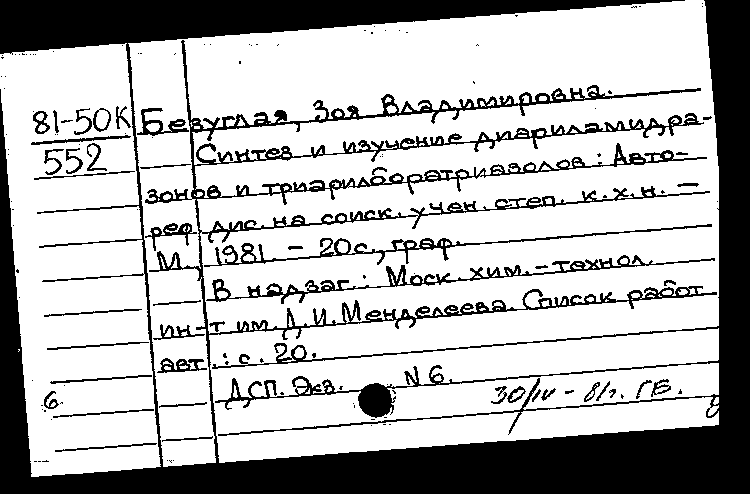 81-50К Безуглая, Зоя Владимировна.
552 Синтез и изучение диариламидра-
зонов и триарилборатриазолов : Авто-
реф. дис. на соиск. учен. степ. к.х.н. –
М., 1981. – 20 с., граф.
В надзаг.: Моск. хим.-технол.
ин-т им. Д.И. Менделеева. Список работ
авт.: с. 20.
ДСП. Экз. N 6.
6 30/IV – 81г. ГБ.